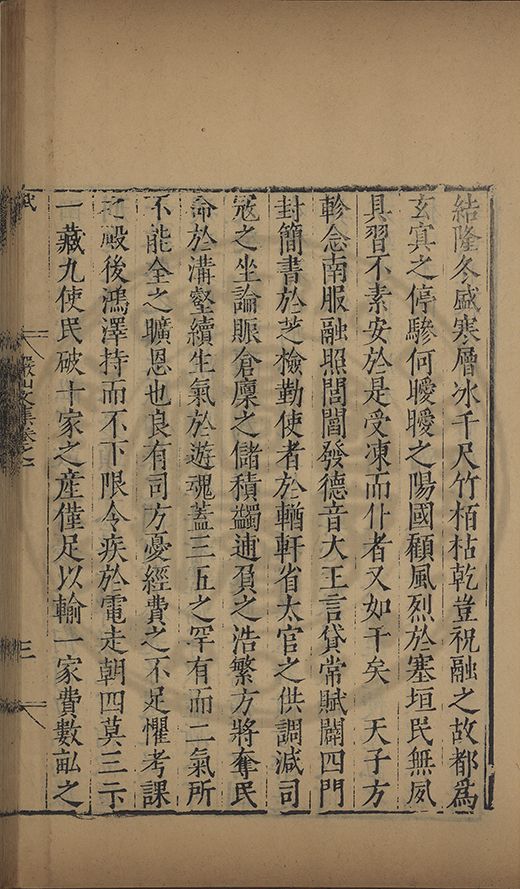 結隆冬盛寒層冰千尺竹栢枯乾豈祝融之故都爲
玄冥之停驂何曖曖之陽國顧風烈於塞垣民無夙
具習不素安於是受凍而仆者又如干矣　天子方
軫念南服融照閭閻發德音大王言貸常賦闢四門
封簡書於芝檢勤使者於輶軒省太官之供調減司
寇之坐論賑倉廩之儲積蠲逋負之浩繁方將奪民
命於溝壑續生氣於遊魂蓋三五之罕有而二氣所
不能全之曠恩也良有司方憂經費之不足懼考課
之殿後鴻澤持而不下限令疾於電走朝四莫三示
一藏九使民破十家之產僅足以輸一家費數畝之
山文集卷之一
三